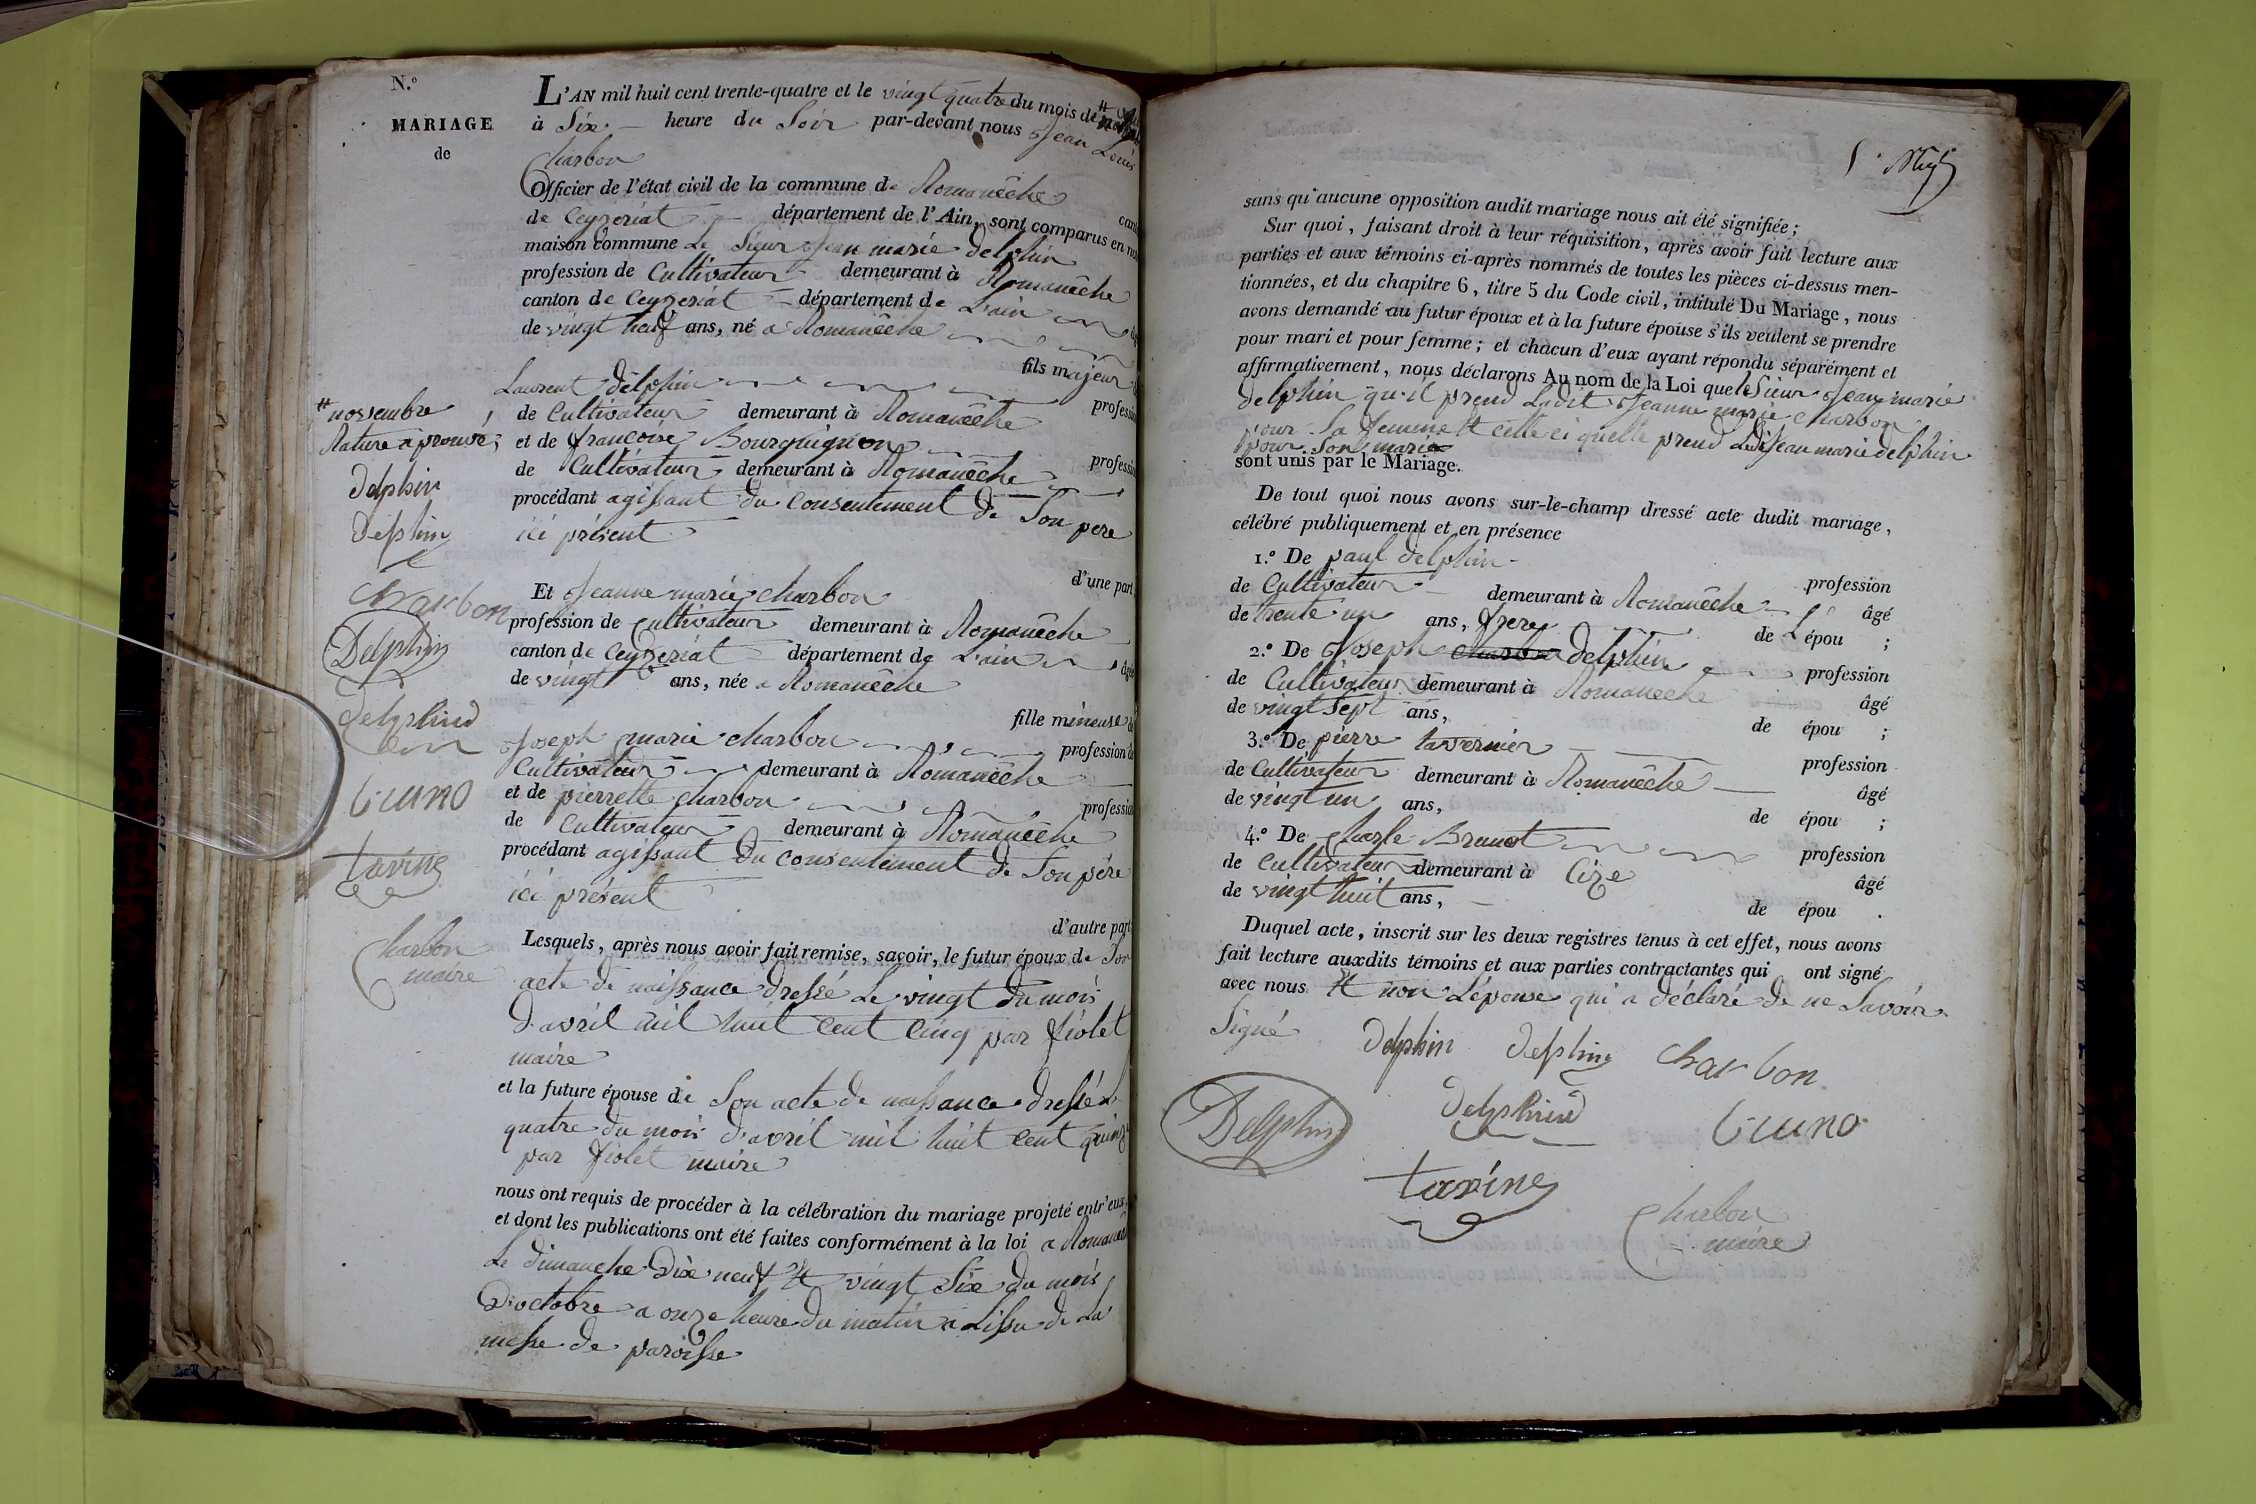 N.º
MARIAGE
de
L'AN mil huit cent trente-quatre et le vingt quatre du mois de #
à Six heure du Soir par-devant nous Jean Louis
Charbon
Officier de l'état civil de la commune de Romanêche
de Ceyzeriat département de l'Ain, sont comparus en
maison commune Le Sieur Jean marie delphin
profession de Cultivateur demeurant à Romanêche
canton de Ceyzeriat département de L'ain
de vingt neuf ans, né a Romanêche
fils majeur
Laurent delphin
de Cultivateur demeurant à Romanêche
et de françoise Bourguignon
de Cultivateur demeurant à Romanêche
procédant agissant du Consentement de Son pere
ici présent
d'une part
Et Jeanne marie charbon
profession de cultivateur demeurant à Romanêche
canton de Ceyzeriat département de L'ain âgée
de vingt ans, née a Romanêche
fille mineure de
Joseph marie charbon profession de
Cultivateur demeurant à Romanêche
et de pierrette charbon
de Cultivateur demeurant à Romanêche
procédant agissant du consentement de Son père
ici présent
d'autre part
Lesquels, après nous avoir fait remise, savoir, le futur époux de Son
acte de naissance dressé Le vingt du mois
d'avril mil huit cent cinq par fiolet
maire
et la future épouse de Son acte de naissance dressé
quatre du mois d'avril mil huit cent
par fiolet maire
nous ont requis de procéder à la célébration du mariage projeté entr'eux,
et dont les publications ont été faites conformément à la loi a
Le dimanche dix neuf et vingt Six du mois
D'octobre a onze heure du matin a Lissu de La
messe de paroisse
# novembre
Rature aprouvé
Delphin
Delphin
Charbon
Delphin
Delphin
Bruno
tavine
Charbon
maire
sans qu'aucune opposition audit mariage nous ait été signifiée ;
Sur quoi, faisant droit à leur réquisition, après avoir fait lecture aux
parties et aux témoins ci-après nommés de toutes les pièces ci-dessus men-
tionnées, et du chapitre 6, titre 5 du Code civil, intitulé Du Mariage, nous
avons demandé au futur époux et à la future épouse s'ils veulent se prendre
pour mari et pour femme ; et chacun d'eux ayant répondu séparément et
affirmativement, nous déclarons Au nom de la Loi que le Sieur Jean marie
delphin qu'il prend Ladit Jeanne marie charbon
pour Sa femme et celle ci quelle prend Ledit Jean marie delphin
pour Son marie
sont unis par le Mariage.
De tout quoi nous avons sur-le-champ dressé acte dudit mariage,
célébré publiquement et en présence
1.º De paul delphin profession
de Cultivateur demeurant à Romanêche âgé
de trente un ans, frere de L'épou ;
2.º De Joseph charbon delphin profession
de Cultivateur demeurant à Romanêche âgé
de vingt Sept ans, de épou ;
3.º De pierre tavernier profession
de Cultivateur demeurant à Romanêche âgé
de vingt un ans, de épou ;
4.º De charle Brunot profession
de Cultivateur demeurant à Cize âgé
de vingt huit ans, de épou .
Duquel acte, inscrit sur les deux registres tenus à cet effet, nous avons
fait lecture auxdits témoins et aux parties contractantes qui ont signé
avec nous et non L'épouse qui a déclaré de ne Savoir
Signé
Delphin Delphin Charbon
Delphin Delphin Bruno
tavine
Charbon
maire